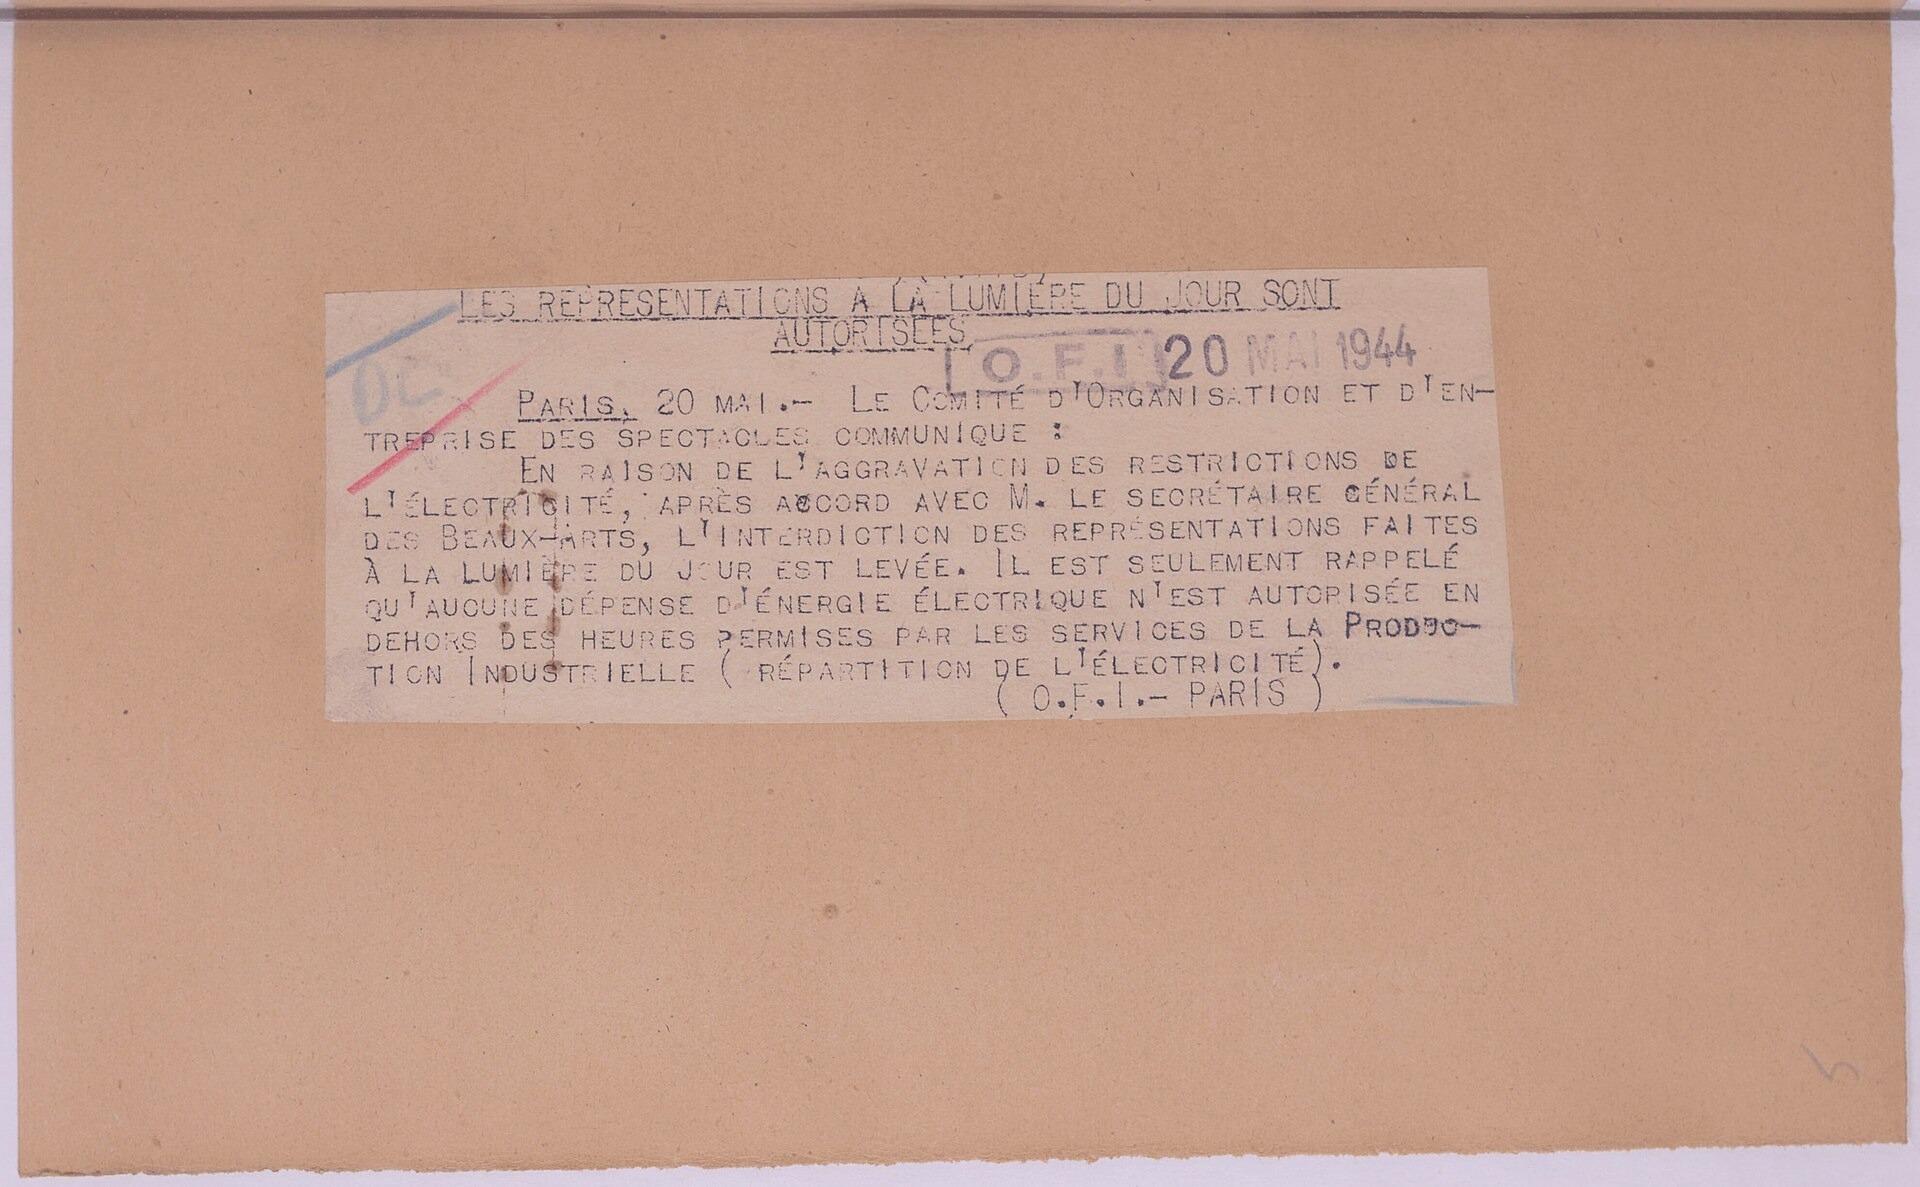 LES REPRESENTATIONS A LA LUMIÈRE DU JOUR SONT
AUTORISEES
O.F.I. 20 MAI 1944
DC
PARIS, 20 MAI.- LE COMITÉ D'ORGANISATION ET D'EN-
TREPRISE DES SPECTACLES COMMUNIQUE :
EN RAISON DE L'AGGRAVATION DES RESTRICTIONS DE
L'ÉLECTRICITÉ, APRÈS ACCORD AVEC M. LE SECRÉTAIRE GÉNÉRAL
DES BEAUX-ARTS, L'INTERDICTION DES REPRÉSENTATIONS FAITES
À LA LUMIÈRE DU JOUR EST LEVÉE. IL EST SEULEMENT RAPPELÉ
QU'AUCUNE DÉPENSE D'ÉNERGIE ÉLECTRIQUE N'EST AUTORISÉE EN
DEHORS DES HEURES PERMISES PAR LES SERVICES DE LA PRODUC-
TION INDUSTRIELLE ( RÉPARTITION DE L'ÉLECTRICITÉ).
( O.F.I.- PARIS )